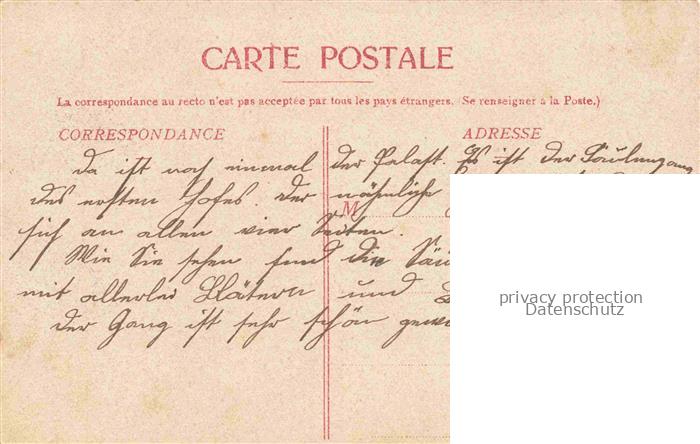 CARTE POSTALE
La correspondance au recto n'est pas acceptée par tous les pays étrangers. (Se renseigner à la Poste.)
CORRESPONDANCE
ADRESSE
Da ist noch einmal der Palast. Es ist der Säulengang
des ersten Hofes. Der nähmliche
M
sich an allen vier Seiten.
Wie Sie sehen sind die Säu
mit allerlei Blätern und
der Gang ist sehr schön gew
privacy protection
Datenschutz